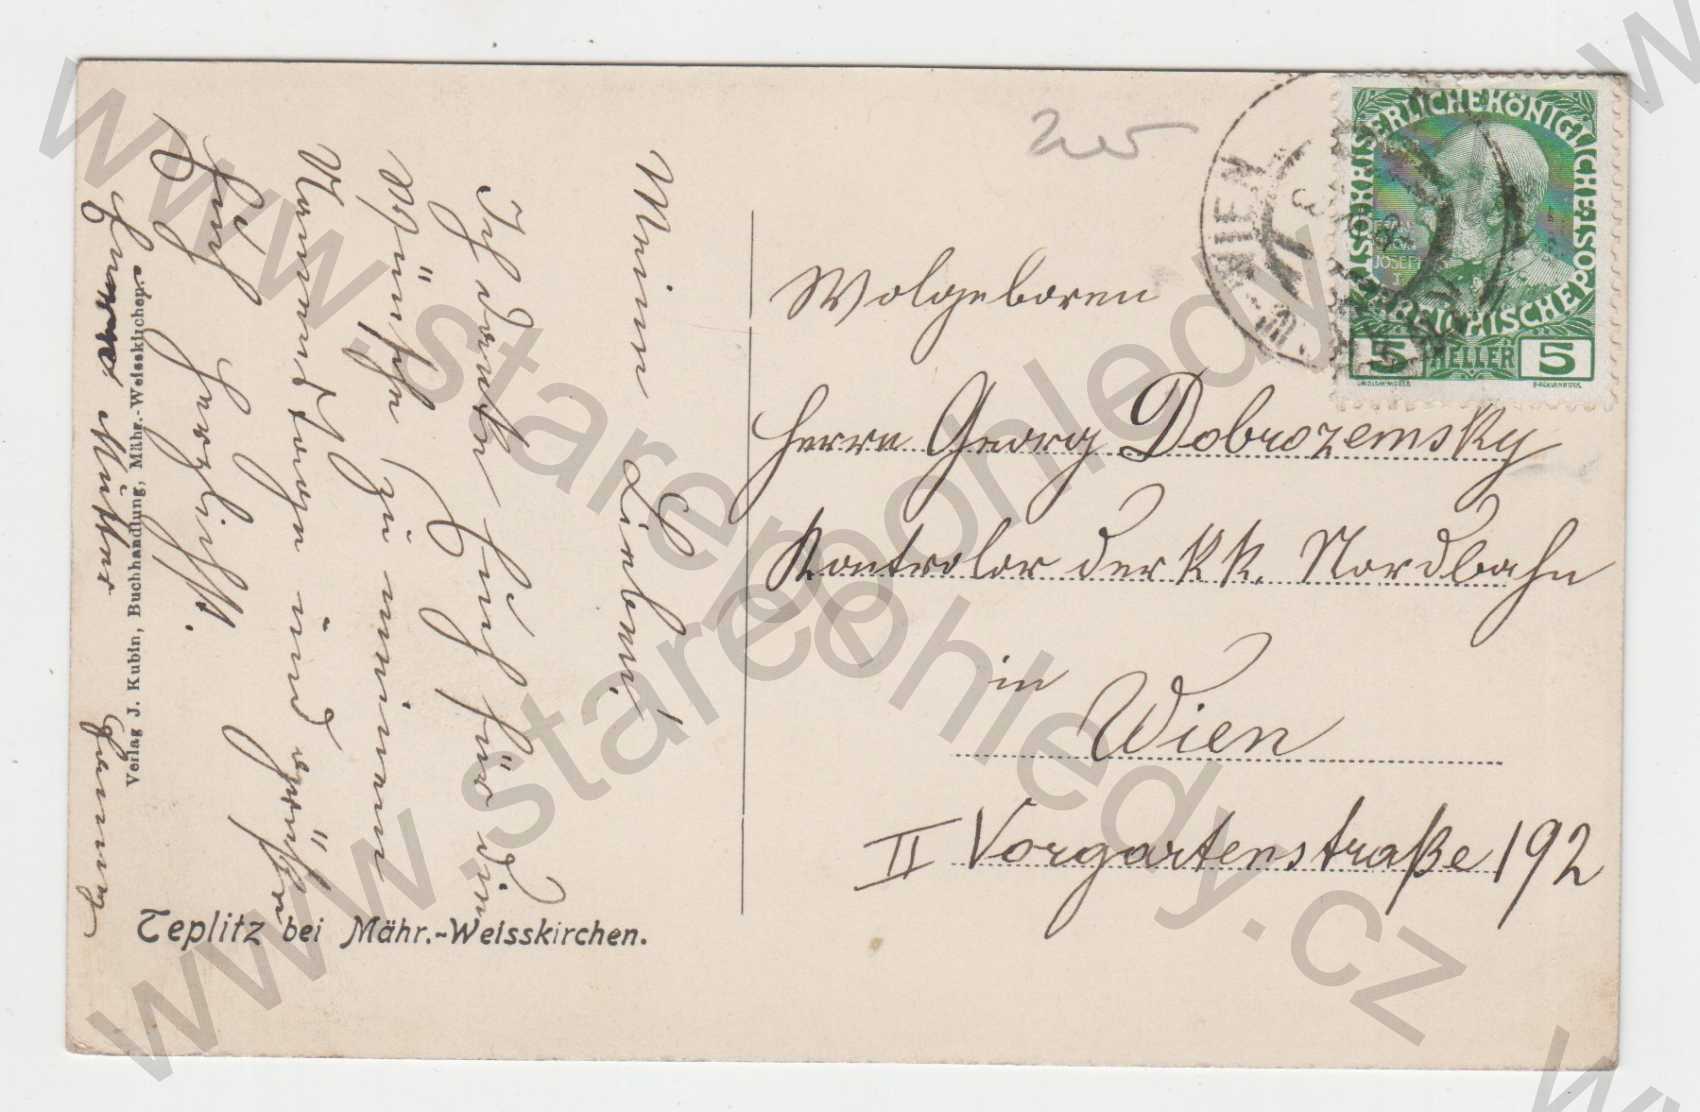 Meine Lieben!
Ich danke Euch für die
Wünsche zu meinem
Namenstage und grüße
Euch herzlichst.
Eure Mutter
Fanny
Verlag J. Kubin, Buchhandlung, Mähr.-Weisskirchen.
Teplitz bei Mähr.-Weisskirchen.
WIEN
KAISERLICHE KÖNIGLICHE
ÖSTERREICHISCHE POST
1908
FRANZ
JOSEPH
I.
5 HELLER 5
Wolgeboren
Herrn Georg Dobrozemsky
Kontrolor der k k. Nordbahn
in
Wien
II Vorgartenstraße 192
www.starepohledy.cz
www.starepohledy.cz